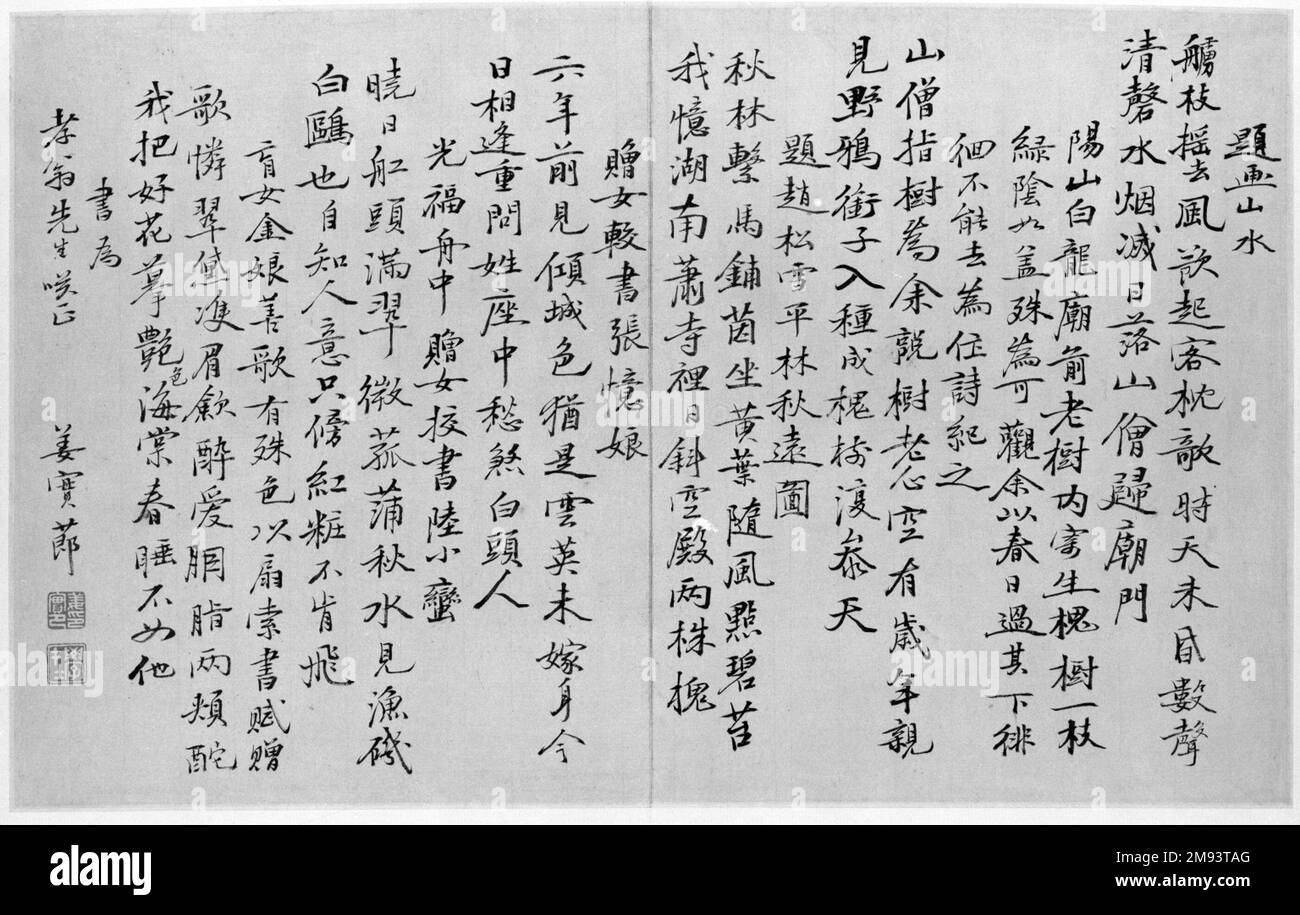 題画山水
艣枝摇去風欲起客枕欹時天未昏數聲
清磬水烟滅日落山僧歸廟門
陽山白龍廟前老樹内寄生槐樹一枝
緑陰如盖殊為可觀余以春日過其下徘
徊不能去為住詩紀之
山僧指樹為余説樹老心空有歲年親
見野鴉銜子入種成槐樹復參天
題趙松雪平林秋遠圖
秋林繫馬鋪茵坐黃葉隨風點碧苔
我憶湖南蕭寺裡日斜空殿两株槐
贈女較書張憶娘
六年前見傾城色猶是雲英未嫁身今
日相逢重問姓座中愁煞白頭人
光福舟中贈女校書陸小蠻
曉日舡頭滿翠微菰蒲秋水見漁磯
白鷗也自知人意只傍紅粧不肯飛
盲女金娘善歌有殊色以扇索書賦贈
歌憐翠黛雙眉斂醉愛胭脂两頰酡
我把好花摹艷色海棠春睡不如他
書為
孝翁先生咲正
姜實節
alamy
Image ID: 2M93TAG
www.alamy.com